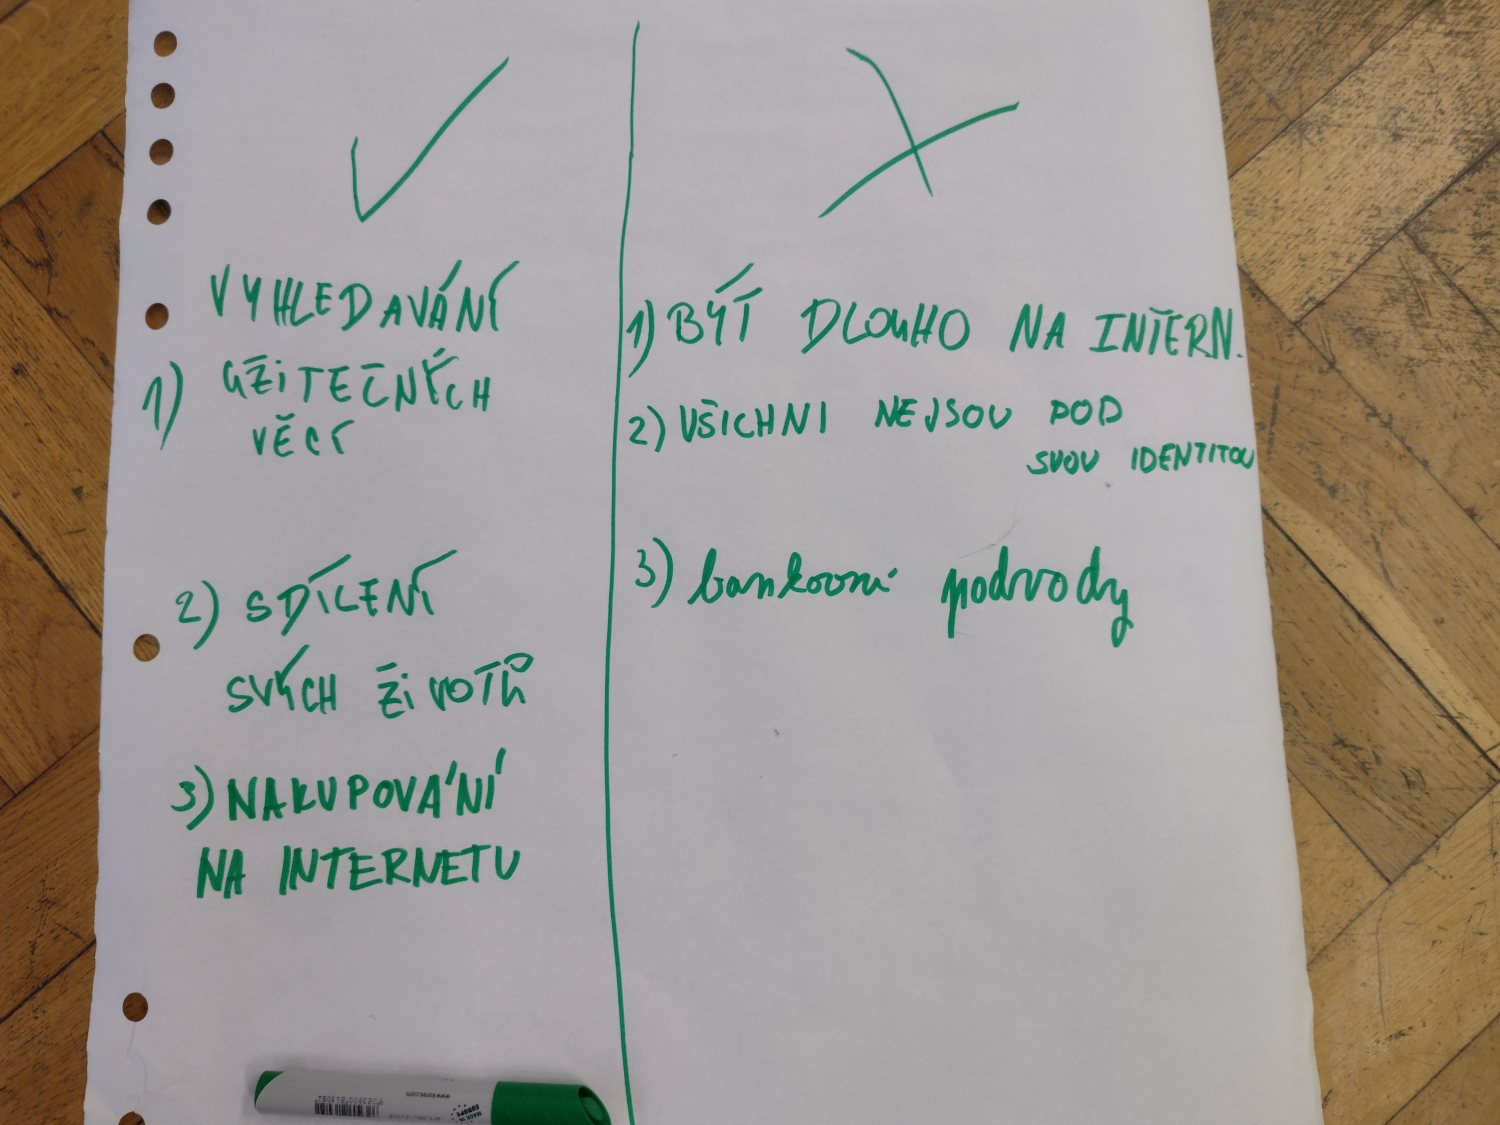 VYHLEDAVÁNÍ
1) UŽITEČNÝCH
VĚCÍ
2) SDÍLENÍ
SVÝCH ŽIVOTŮ
3) NAKUPOVÁNÍ
NA INTERNETU
1) BÝT DLOUHO NA INTERN.
2) VŠICHNI NEJSOU POD
SVOU IDENTITOU
3) bankovní podvody
www.kores.com
MADE IN
EUROPE